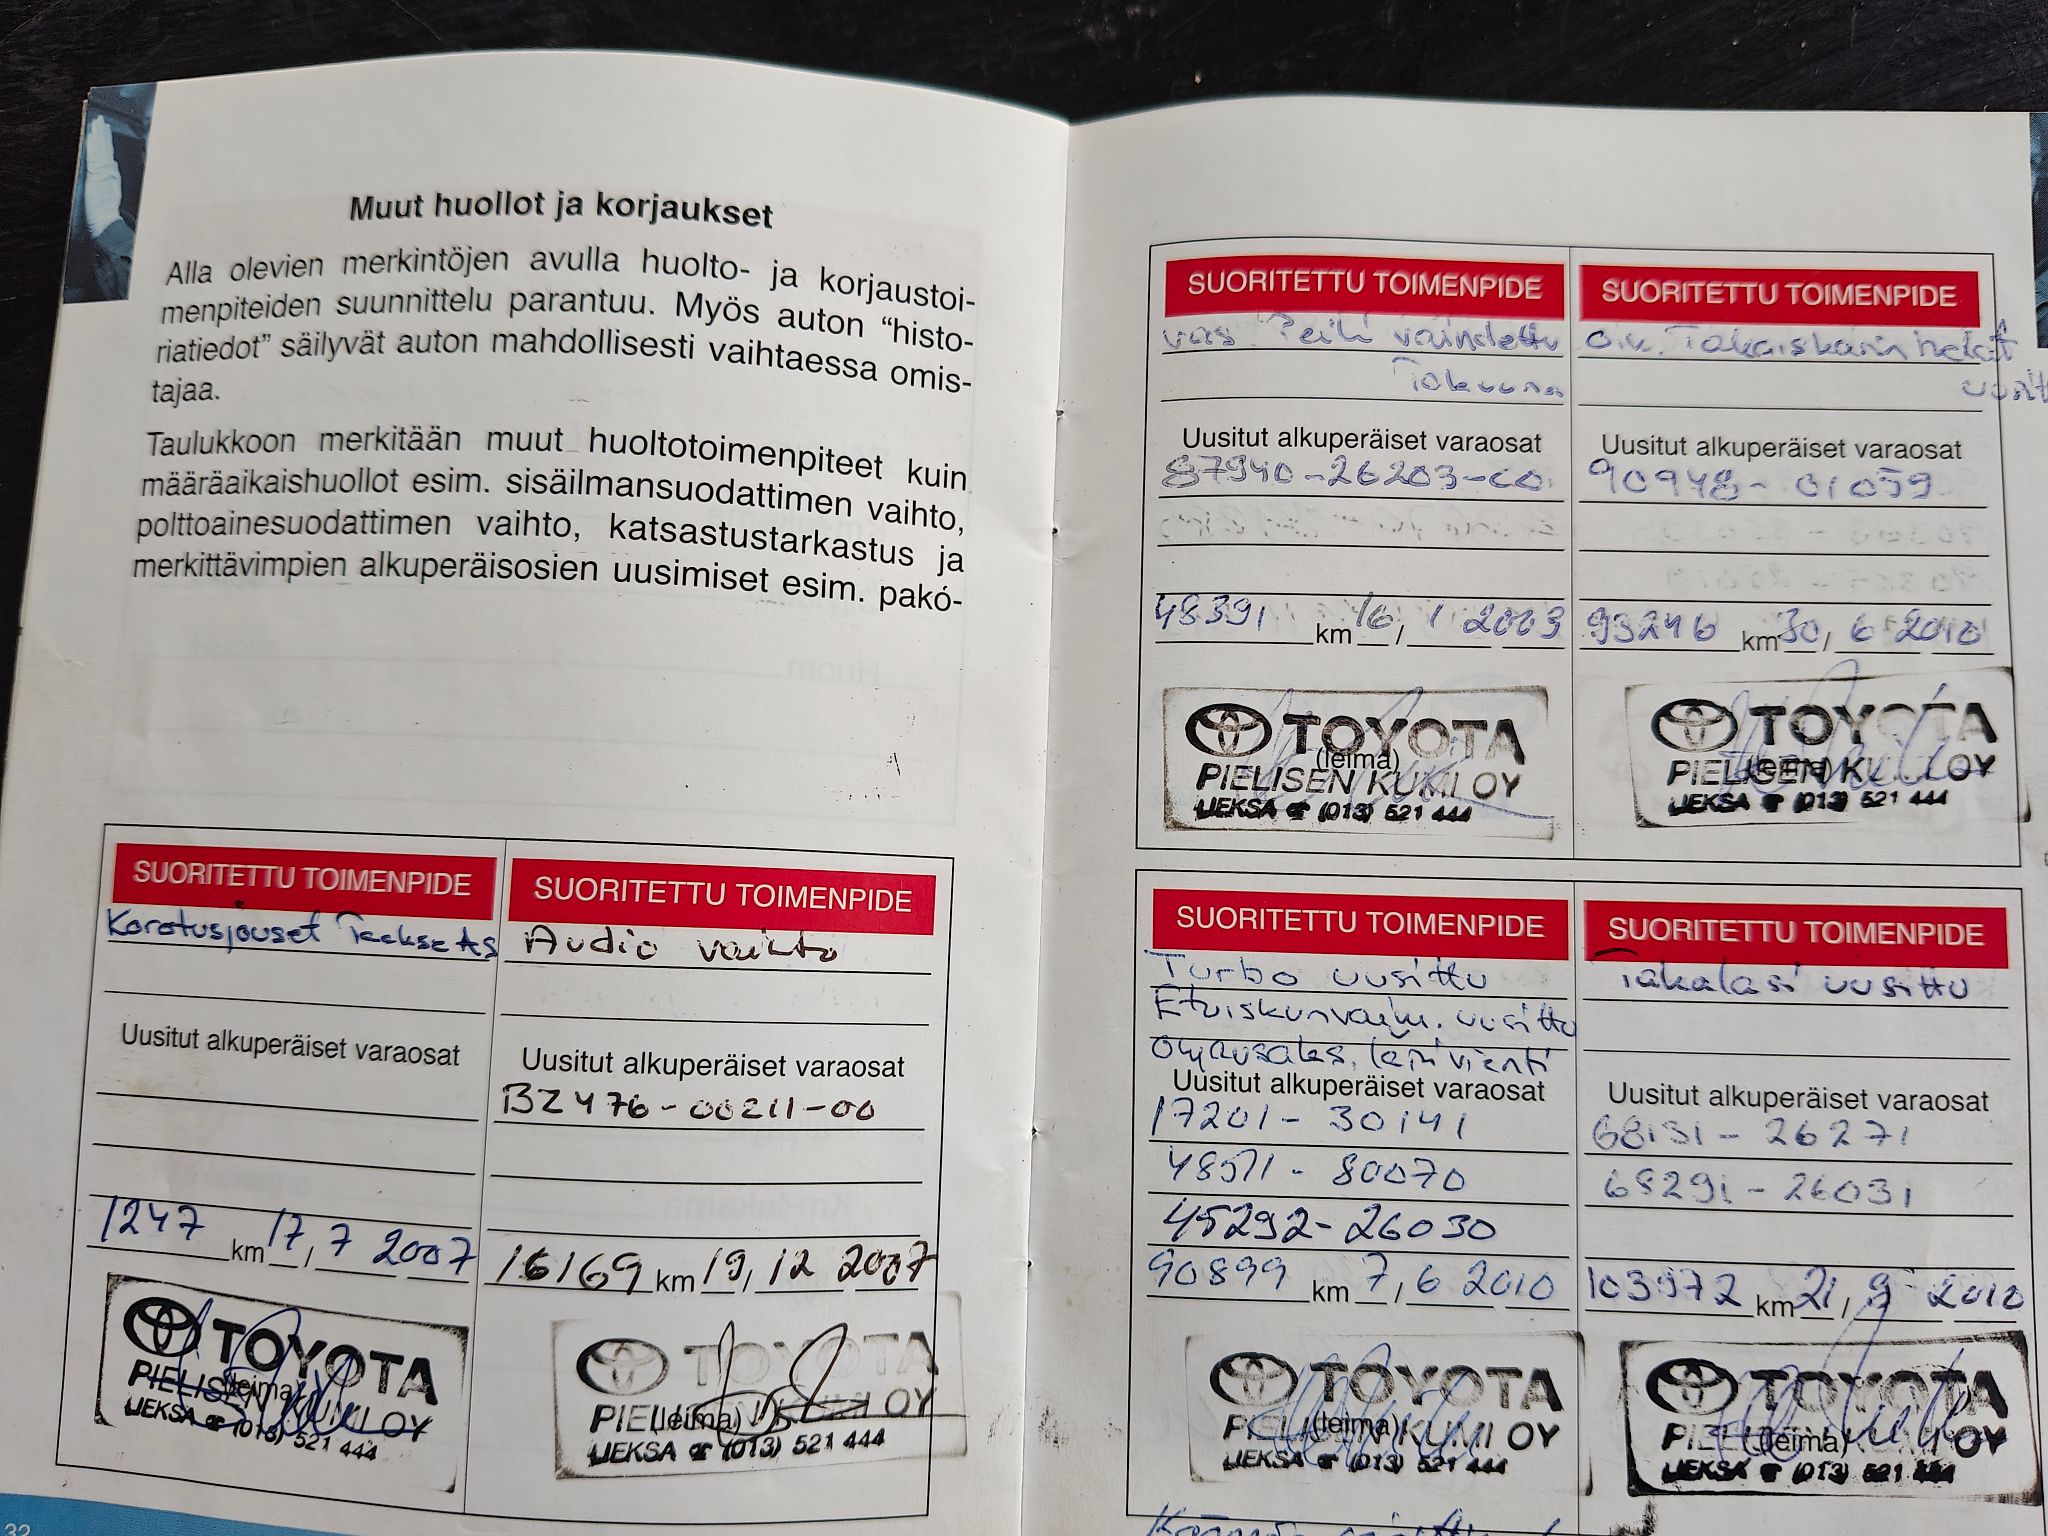 Muut huollot ja korjaukset
Alla olevien merkintöjen avulla huolto- ja korjaustoi-
menpiteiden suunnittelu parantuu. Myös auton “histo-
riatiedot” säilyvät auton mahdollisesti vaihtaessa omis-
tajaa.
Taulukkoon merkitään muut huoltotoimenpiteet kuin
määräaikaishuollot esim. sisäilmansuodattimen vaihto,
polttoainesuodattimen vaihto, katsastustarkastus ja
merkittävimpien alkuperäisosien uusimiset esim. pakó-
SUORITETTU TOIMENPIDE
Korotusjouset Taakse As
Uusitut alkuperäiset varaosat
1247 km 17 / 7 2007
TOYOTA
(leima)
PIELISEN KUMI OY
LIEKSA ☎ (013) 521 444
SUORITETTU TOIMENPIDE
Audio vaihto
Uusitut alkuperäiset varaosat
BZ476-00211-00
16169 km 19 / 12 2007
TOYOTA
(leima)
KUMI OY
LIEKSA ☎ (013) 521 444
32
SUORITETTU TOIMENPIDE
vas Peili vaihdettu
Takuuna
Uusitut alkuperäiset varaosat
87940-26203-C0
48391 km 16 / 1 2009
TOYOTA
(leima)
PIELISEN KUMI OY
LIEKSA ☎ (013) 521 444
SUORITETTU TOIMENPIDE
o.v. Takaiskarin
Uusitut alkuperäiset varaosat
90948-01059
93246 km 30 / 6 2010
TOYOTA
(leima)
PIELISEN KUMI OY
LIEKSA ☎ (013) 521 444
SUORITETTU TOIMENPIDE
Turbo uusittu
Etuiskunvaim. uusittu
Uusitut alkuperäiset varaosat
17201-30141
48511-80070
45292-26030
90899 km 7 / 6 2010
TOYOTA
(leima)
KUMI OY
LIEKSA ☎ (013) 521 444
SUORITETTU TOIMENPIDE
Takalasi uusittu
Uusitut alkuperäiset varaosat
68131-26271
68291-26031
103972 km 21 / 9 2010
TOYOTA
(leima)
OY
LIEKSA ☎ (013) 521 444